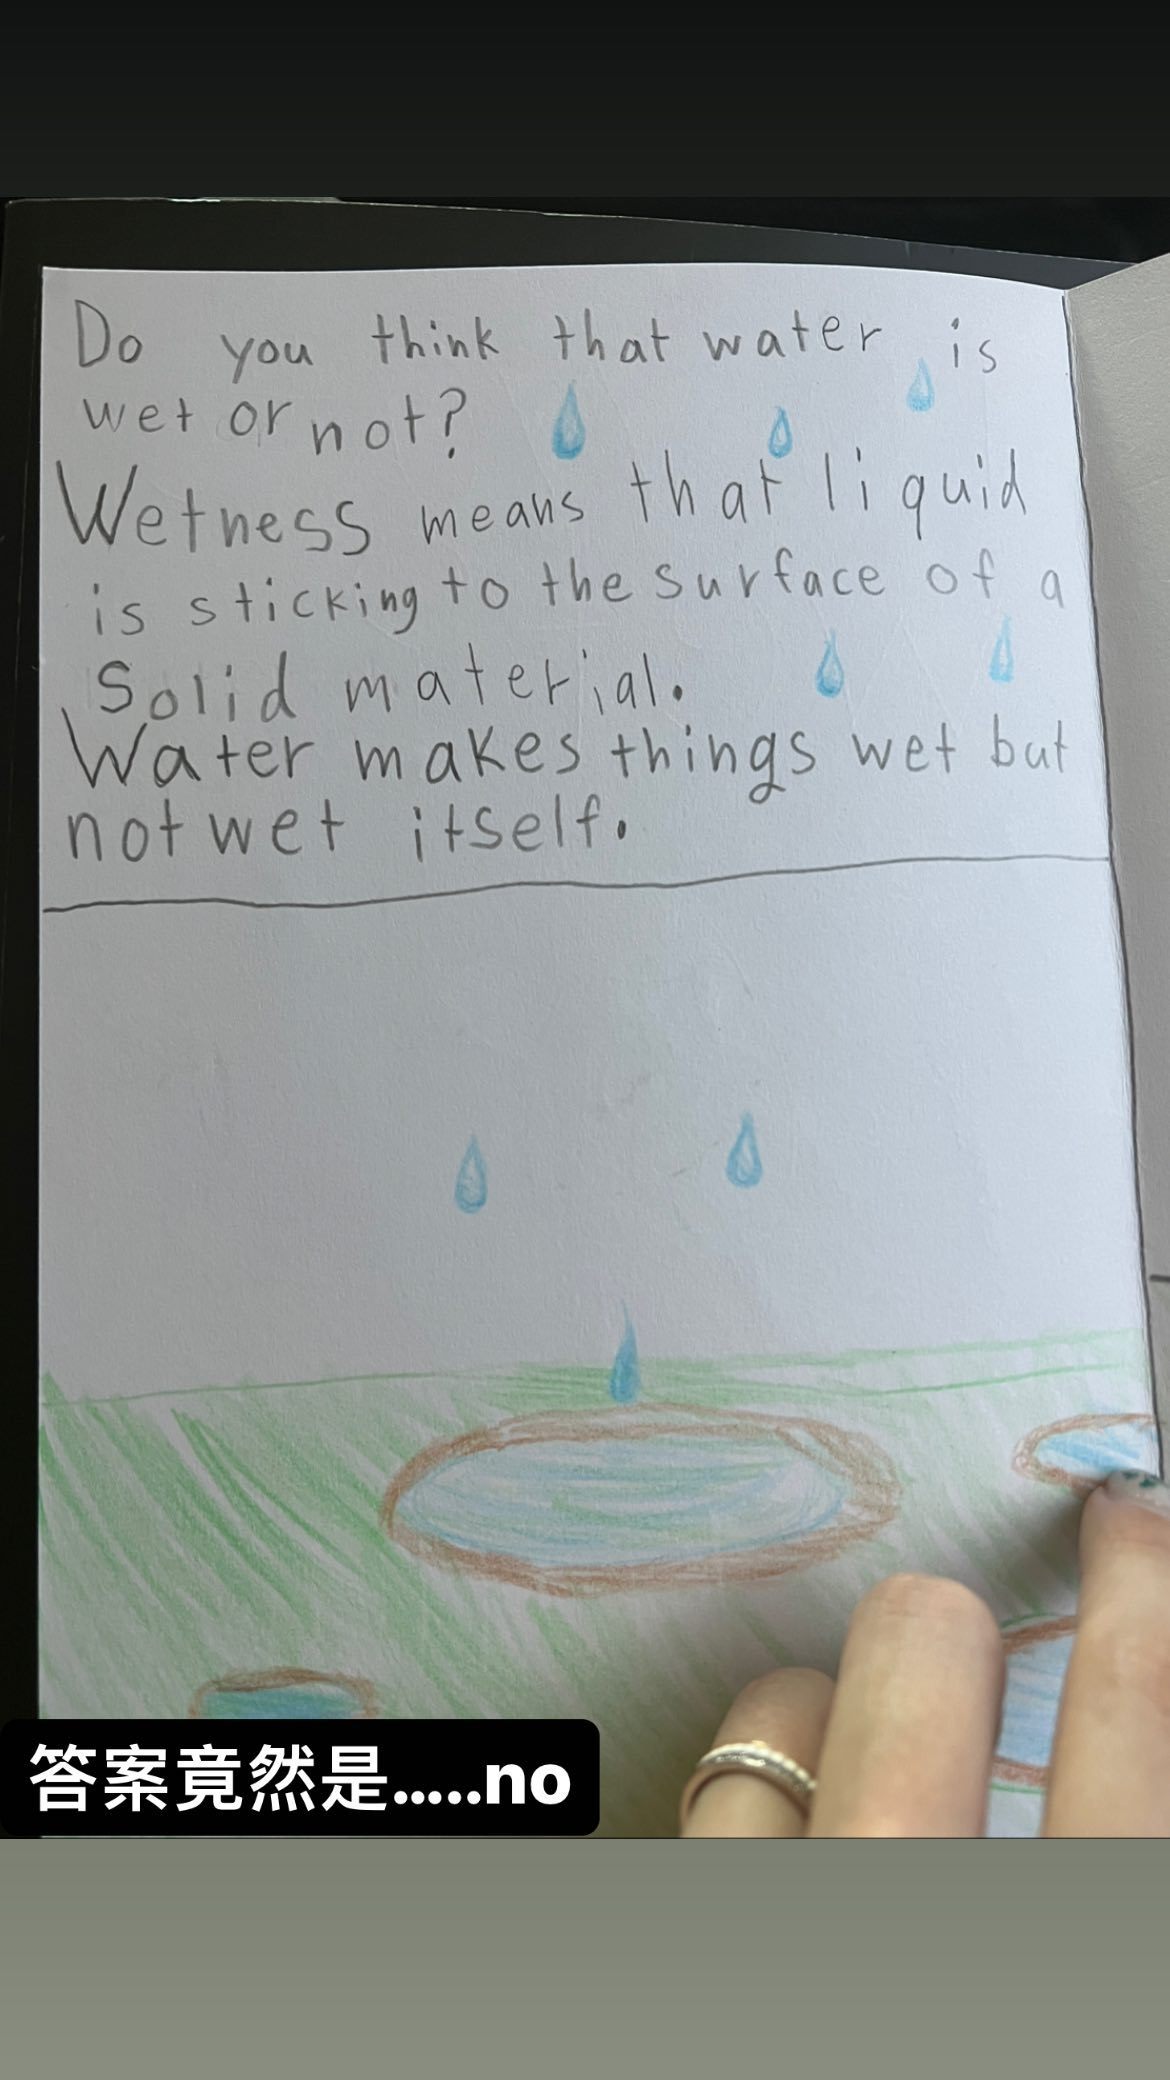 Do you think that water is
wet or not?
Wetness means that liquid
is sticking to the surface of a
Solid material.
Water makes things wet but
not wet itself.
答案竟然是.....no